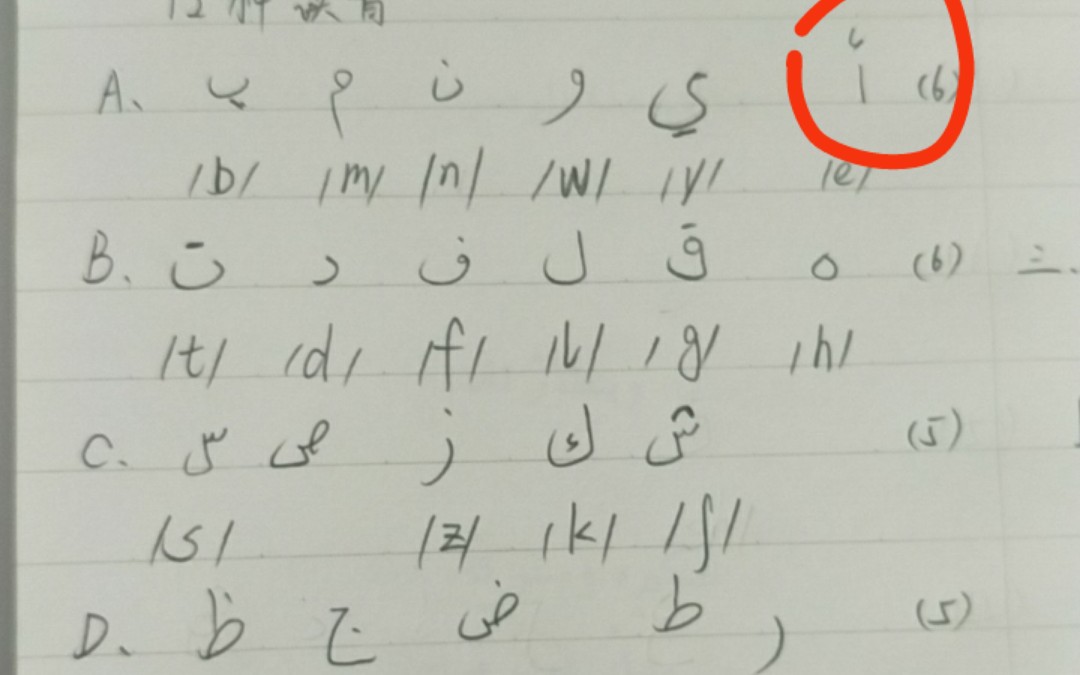 A、 ب م ن و ي أ (6)
/b/ /m/ /n/ /w/ /y/ /e/
B. ت د ف ل ق ه (6) 三.
/t/ /d/ /f/ /l/ /g/ /h/
C. س ص ز ك ش (5)
/s/ /z/ /k/ /ʃ/
D、 ظ ج ض ط ر (5)